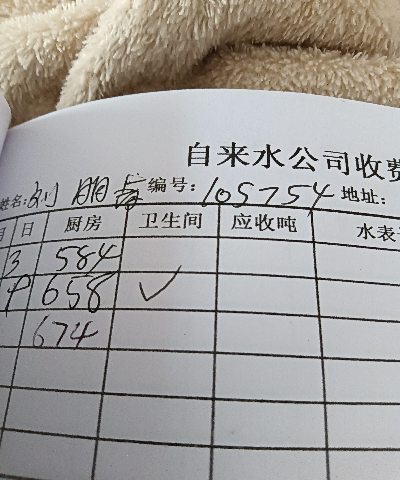 自来水公司收费
姓名:刘 朋 编号:105754 地址:
月 日 厨房 卫生间 应收吨 水表
3 584
658 ✓
674